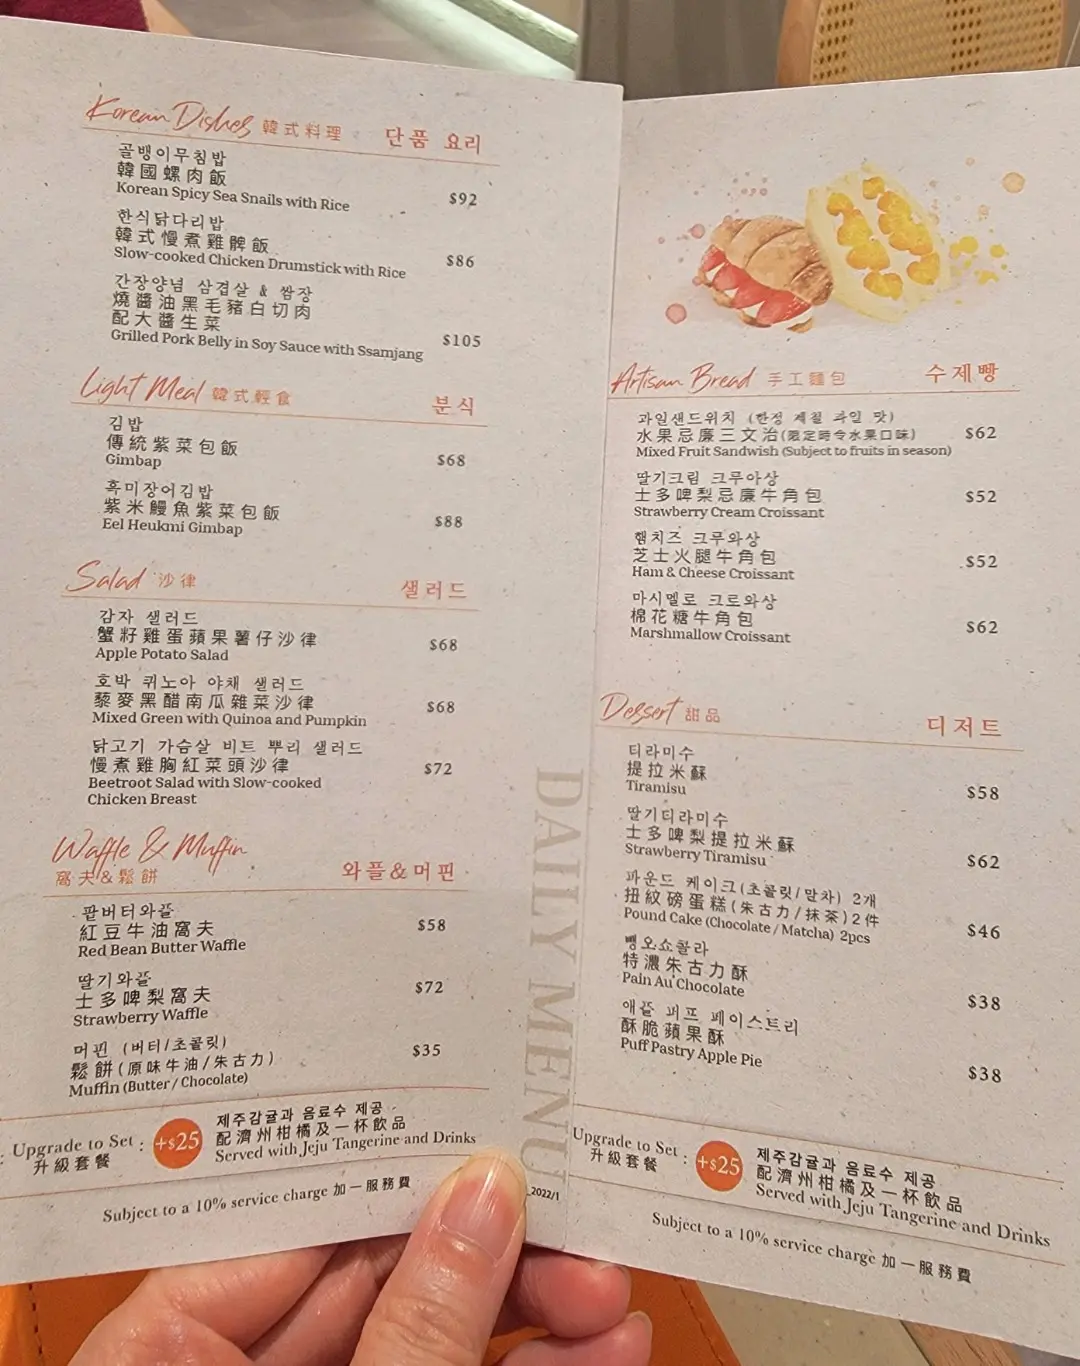 Korean Dishes 韓式料理 단품 요리
골뱅이무침밥
韓國螺肉飯
Korean Spicy Sea Snails with Rice $92
한식닭다리밥
韓式慢煮雞髀飯
Slow-cooked Chicken Drumstick with Rice $86
간장양념 삼겹살 & 쌈장
燒醬油黑毛豬白切肉
配大醬生菜
Grilled Pork Belly in Soy Sauce with Ssamjang $105
Light Meal 韓式輕食 분식
김밥
傳統紫菜包飯
Gimbap $68
흑미장어김밥
紫米鰻魚紫菜包飯
Eel Heukmi Gimbap $88
Salad 沙律 샐러드
감자 샐러드
蟹籽雞蛋蘋果薯仔沙律
Apple Potato Salad $68
호박 퀴노아 야채 샐러드
藜麥黑醋南瓜雜菜沙律
Mixed Green with Quinoa and Pumpkin $68
닭고기 가슴살 비트 뿌리 샐러드
慢煮雞胸紅菜頭沙律
Beetroot Salad with Slow-cooked
Chicken Breast $72
Waffle & Muffin
窩夫&鬆餅 와플&머핀
팥버터와플
紅豆牛油窩夫
Red Bean Butter Waffle $58
딸기와플
士多啤梨窩夫
Strawberry Waffle $72
머핀 (버터/초콜릿)
鬆餅(原味牛油/朱古力)
Muffin (Butter / Chocolate) $35
: Upgrade to Set :
升級套餐
+$25
제주감귤과 음료수 제공
配濟州柑橘及一杯飲品
Served with Jeju Tangerine and Drinks
Subject to a 10% service charge 加一服務費
DAILY MENU
_2022/1
Artisan Bread 手工麵包 수제빵
과일샌드위치 (한정 계절 과일 맛)
水果忌廉三文治(限定時令水果口味)
Mixed Fruit Sandwish (Subject to fruits in season) $62
딸기크림 크루아상
士多啤梨忌廉牛角包
Strawberry Cream Croissant $52
햄치즈 크루와상
芝士火腿牛角包
Ham & Cheese Croissant $52
마시멜로 크로와상
棉花糖牛角包
Marshmallow Croissant $62
Dessert 甜品 디저트
티라미수
提拉米蘇
Tiramisu $58
딸기티라미수
士多啤梨提拉米蘇
Strawberry Tiramisu $62
파운드 케이크(초콜릿/말차) 2개
扭紋磅蛋糕(朱古力/抹茶)2件
Pound Cake (Chocolate / Matcha) 2pcs $46
뺑오쇼콜라
特濃朱古力酥
Pain Au Chocolate $38
애플 퍼프 페이스트리
酥脆蘋果酥
Puff Pastry Apple Pie $38
Upgrade to Set :
升級套餐
+$25
제주감귤과 음료수 제공
配濟州柑橘及一杯飲品
Served with Jeju Tangerine and Drinks
Subject to a 10% service charge 加一服務費